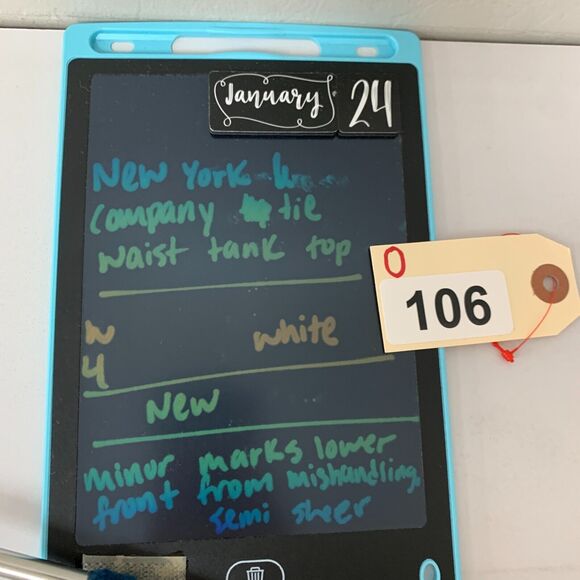 January 24
New York
company tie
waist tank top
O
106
W white
4
New
minor marks lower
front from mishandling.
semi sheer